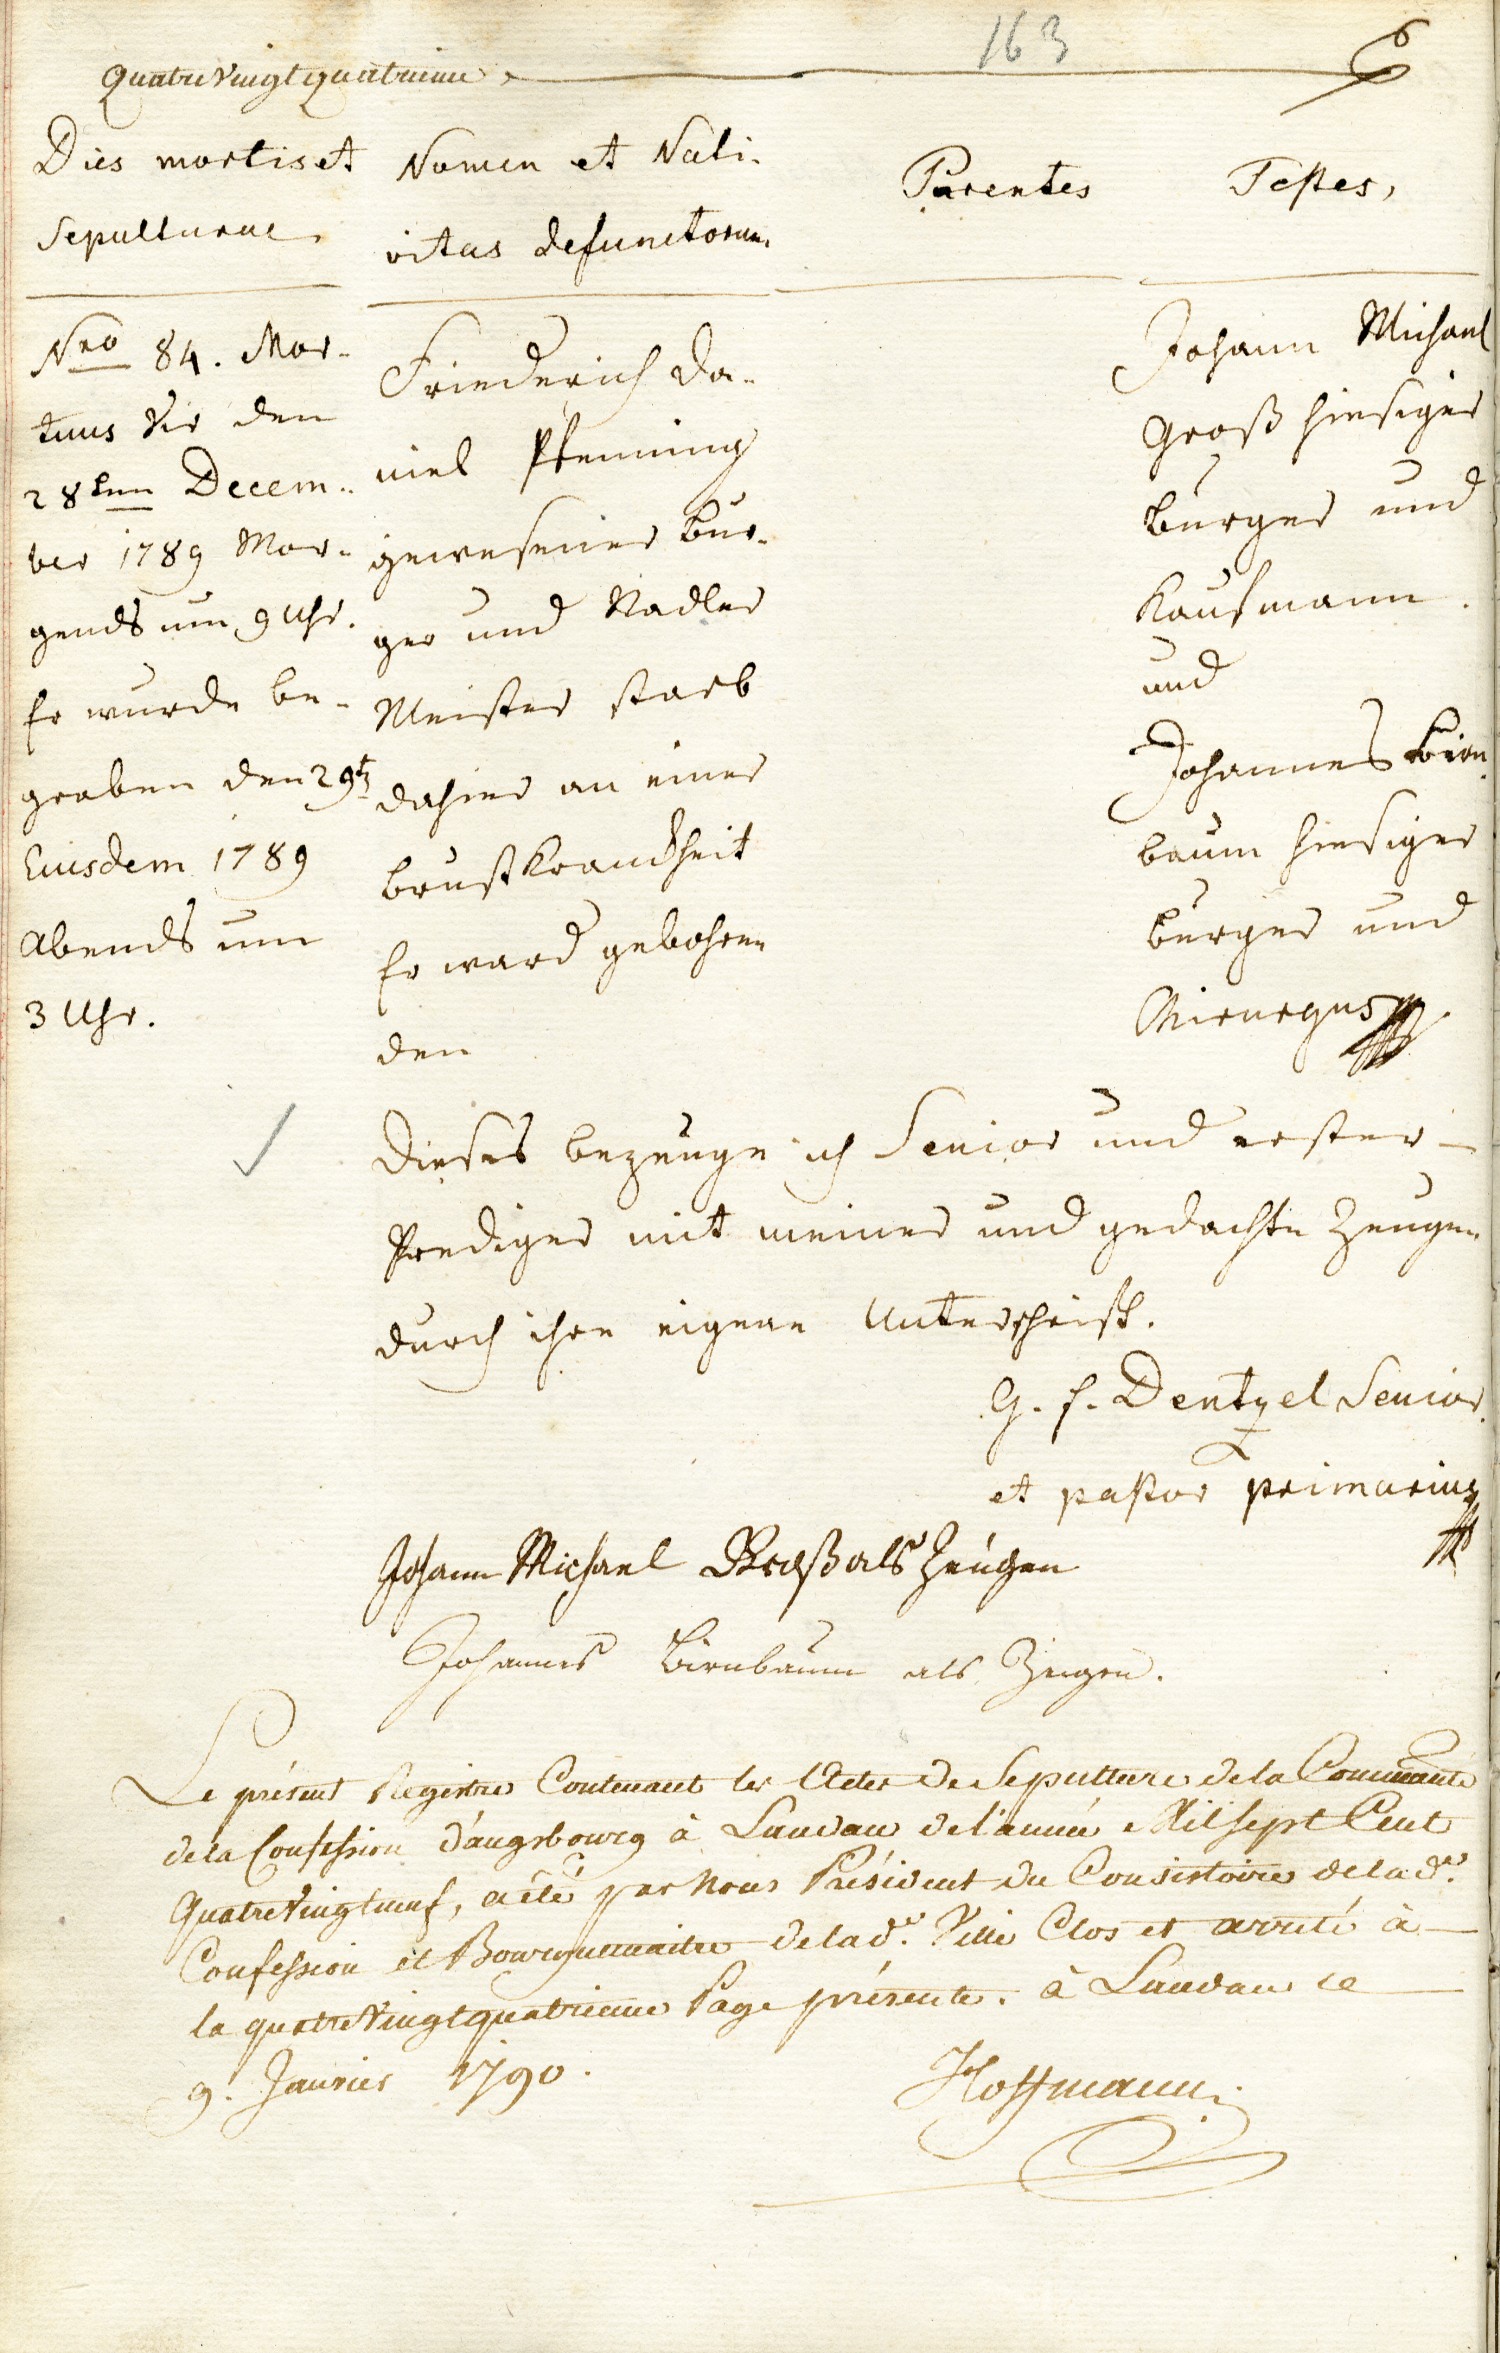 163
Quatre Vingt quatrieme
Dies mortis et
Sepulturae.
Nomen et Nati-
vitas defunctorum.
Parentes
Testes,
Nro 84. Mor-
tuus Vir den
28ten Decem-
ber 1789 Mor-
gends um 9 Uhr.
Er wurde be-
graben den 29t
Eiusdem 1789
Abends um
3 Uhr.
Friederich Da-
niel Pfenning
gewesener Bur-
ger und Nadler
Meister starb
dahier an einer
Brustkrandheit
Er ward gebohren
den
Johann Michael
Groß hiesiger
burger und
Kaufmann.
und
Johannes Birn-
baum hiesiger
burger und
Chirurgus
Dieses bezeuge ich Senior und erster
Prediger mit meiner und gedachte Zeugen
durch ihre eigene Unterschrift.
G. f. Dentzel Senior
et pastor primarius
Johann Michael Groß als Zeugen
Johannes Birnbaum als Zeugen.
Le présent Registre Contenant les Actes de Sepulture de la Communauté
de la Confession d'augsbourg à Landau de l'année Mil sept Cent
Quatre Vingt neuf, a été par Nous Président du Consistoire de lad.e
Confession et Bourguemaitre de lad.e Ville Clos et arreté à
la quatre Vingt quatrieme Page présente. à Landau ce
9. Janvier 1790.
Hoffmann